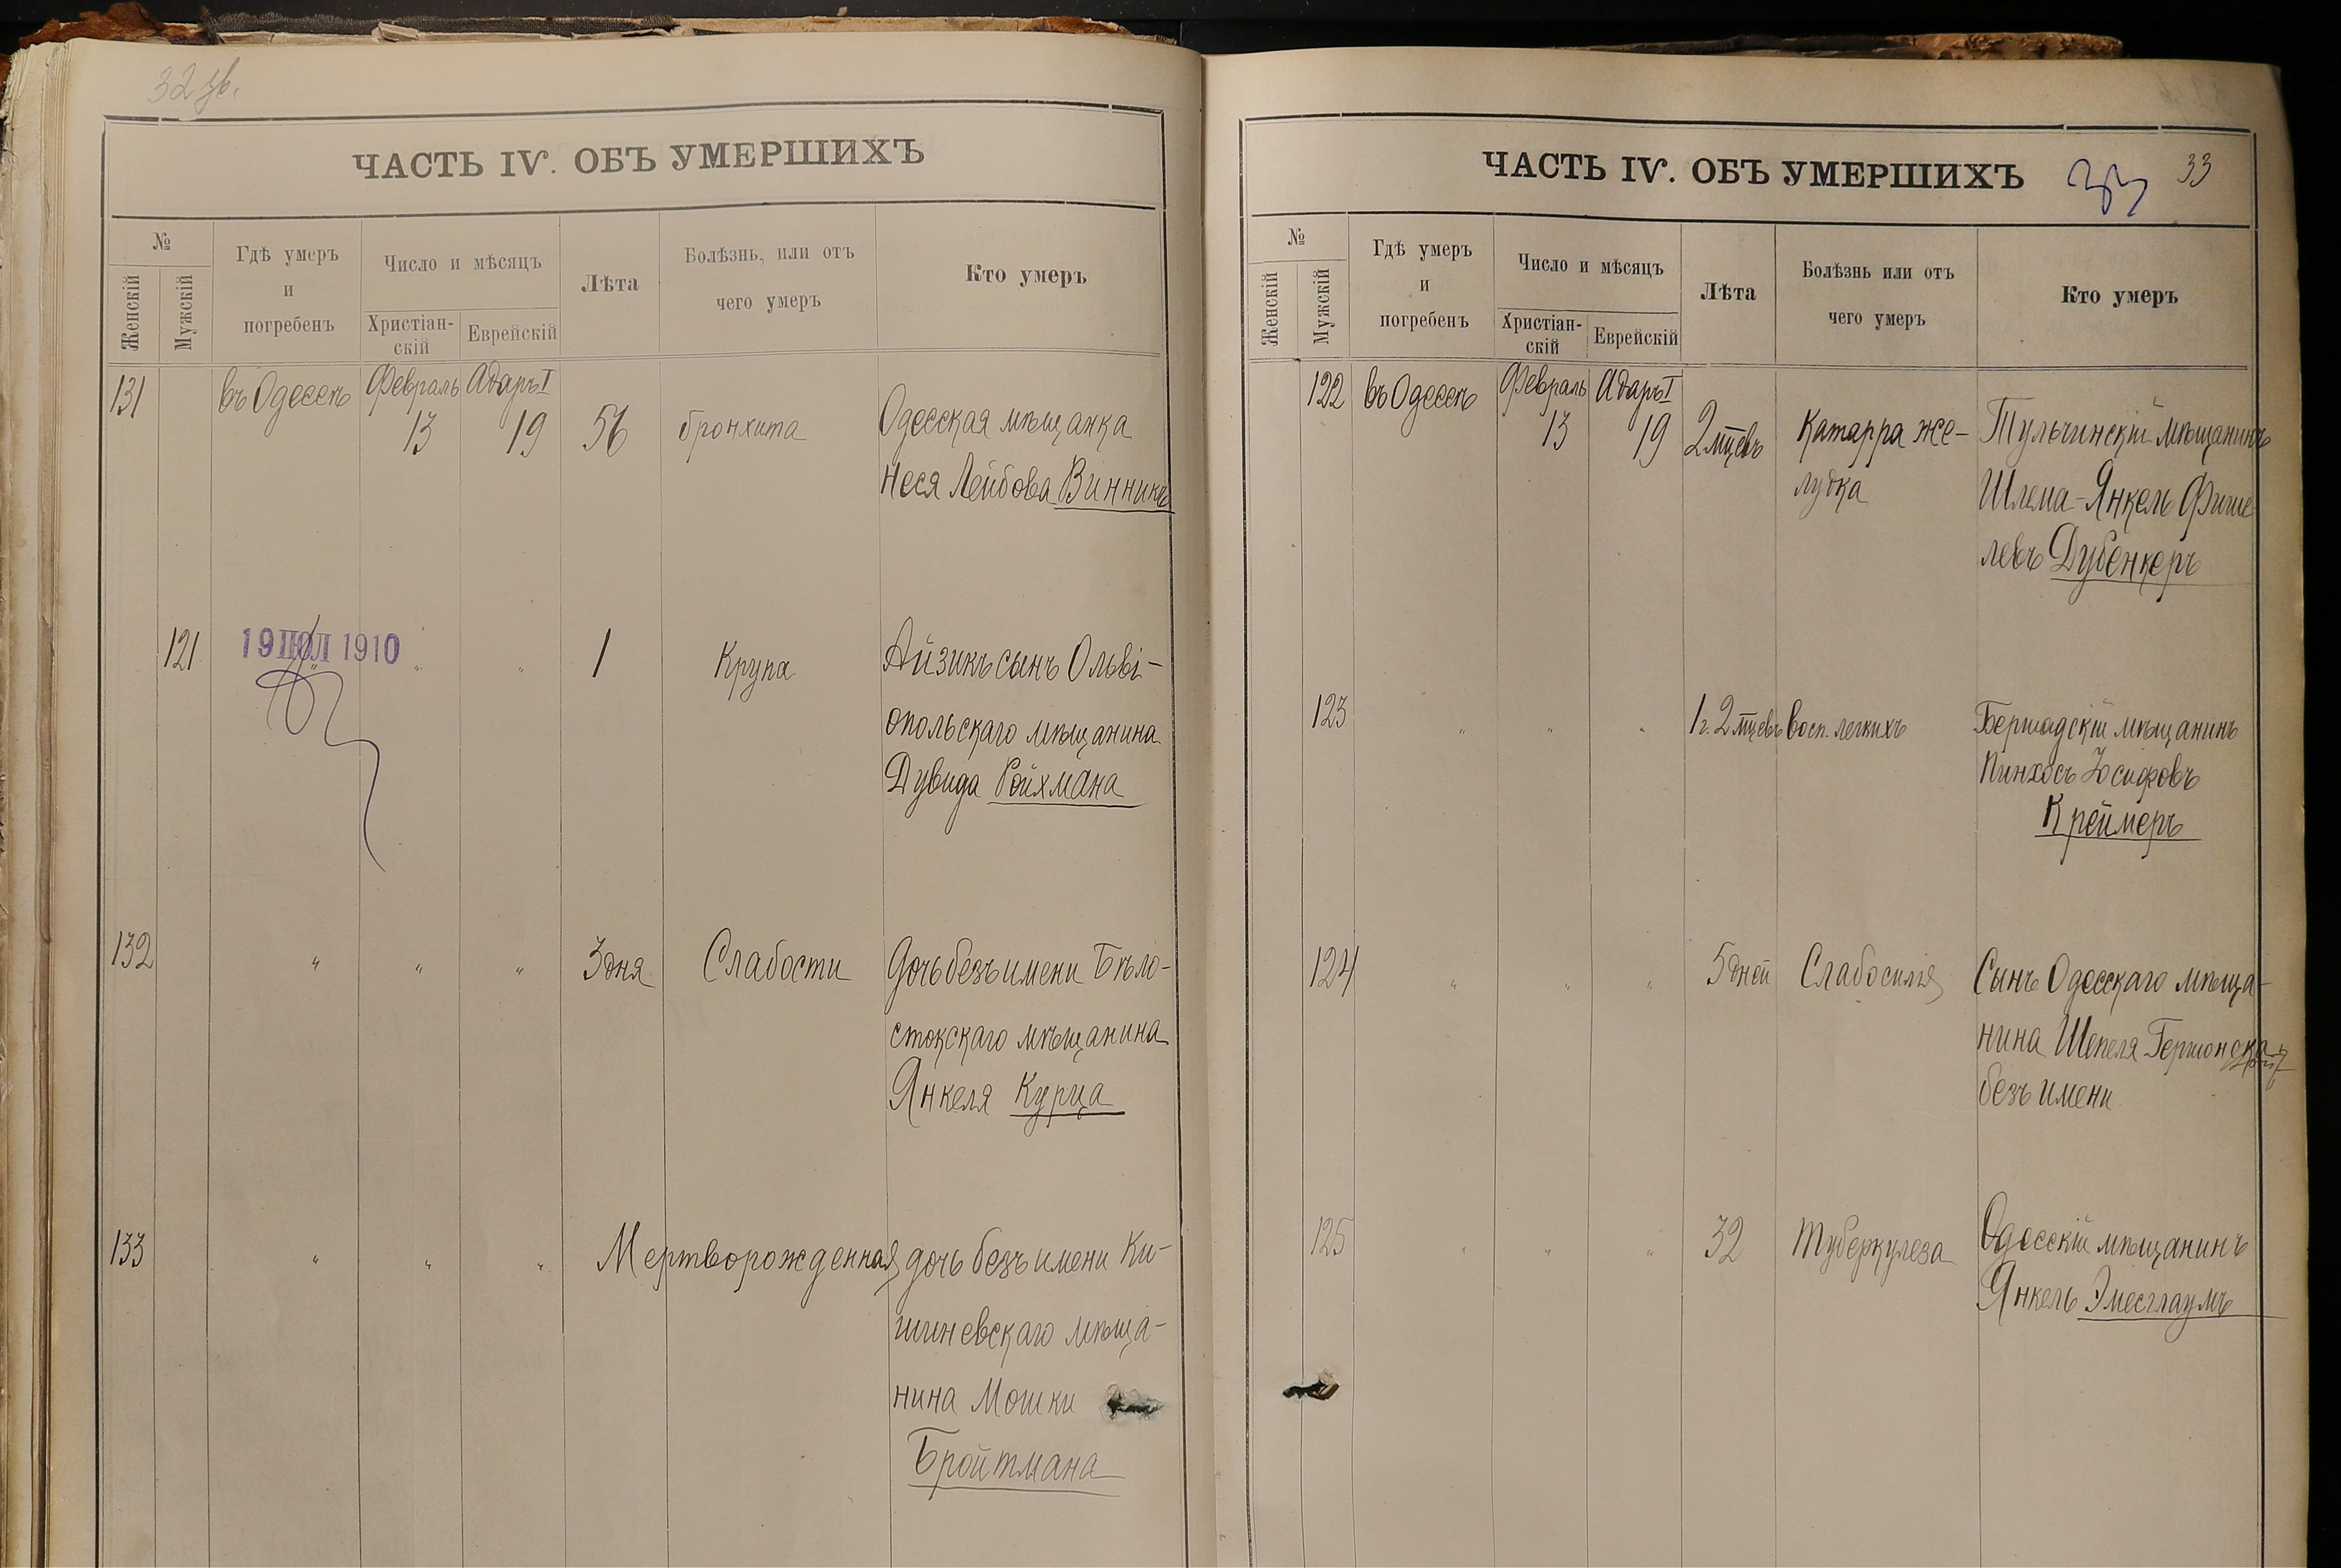 32 об.
ЧАСТЬ IV. ОБЪ УМЕРШИХЪ
№
Женскій
Мужскій
Гдѣ умеръ
и
погребенъ
Число и мѣсяцъ
Христіан-
скій
Еврейскій
Лѣта
Болѣзнь, или отъ
чего умеръ
Кто умеръ
131 въ Одессѣ Февраль Адаръ I
13 19 56 бронхита Одесская мѣщанка
Неся Лейбова Винникъ
121 19 ІЮЛ 1910 " " 1 Крупа Айзикъ сынъ Ольві-
опольскаго мѣщанина
Дувида Ройхмана
132 " " " 3 дня Слабости Дочь безъ имени Бѣло-
стокскаго мѣщанина
Янкеля Курца
133 " " " Мертворожденная дочь безъ имени Ки-
шиневскаго мѣща-
нина Мошки
Бройтмана
ЧАСТЬ IV. ОБЪ УМЕРШИХЪ
33
№
Женскій
Мужскій
Гдѣ умеръ
и
погребенъ
Число и мѣсяцъ
Христіан-
скій
Еврейскій
Лѣта
Болѣзнь или отъ
чего умеръ
Кто умеръ
122 въ Одессѣ Февраль Адаръ I
13 19 2 мцевъ Катарра же- Тульчинскій мѣщанинъ
лудка Шлема-Янкель Фише
левъ Дубенкеръ
123 " " " 1 г. 2 мцевъ Восп. легкихъ Бершадскій мѣщанинъ
Пинхосъ Іосифовъ
Креймеръ
124 " " " 5 дней Слабосилія Сынъ Одесскаго мѣща-
нина Шепеля
безъ имени
125 " " " 32 Туберкулеза Одесскій мѣщанинъ
Янкель